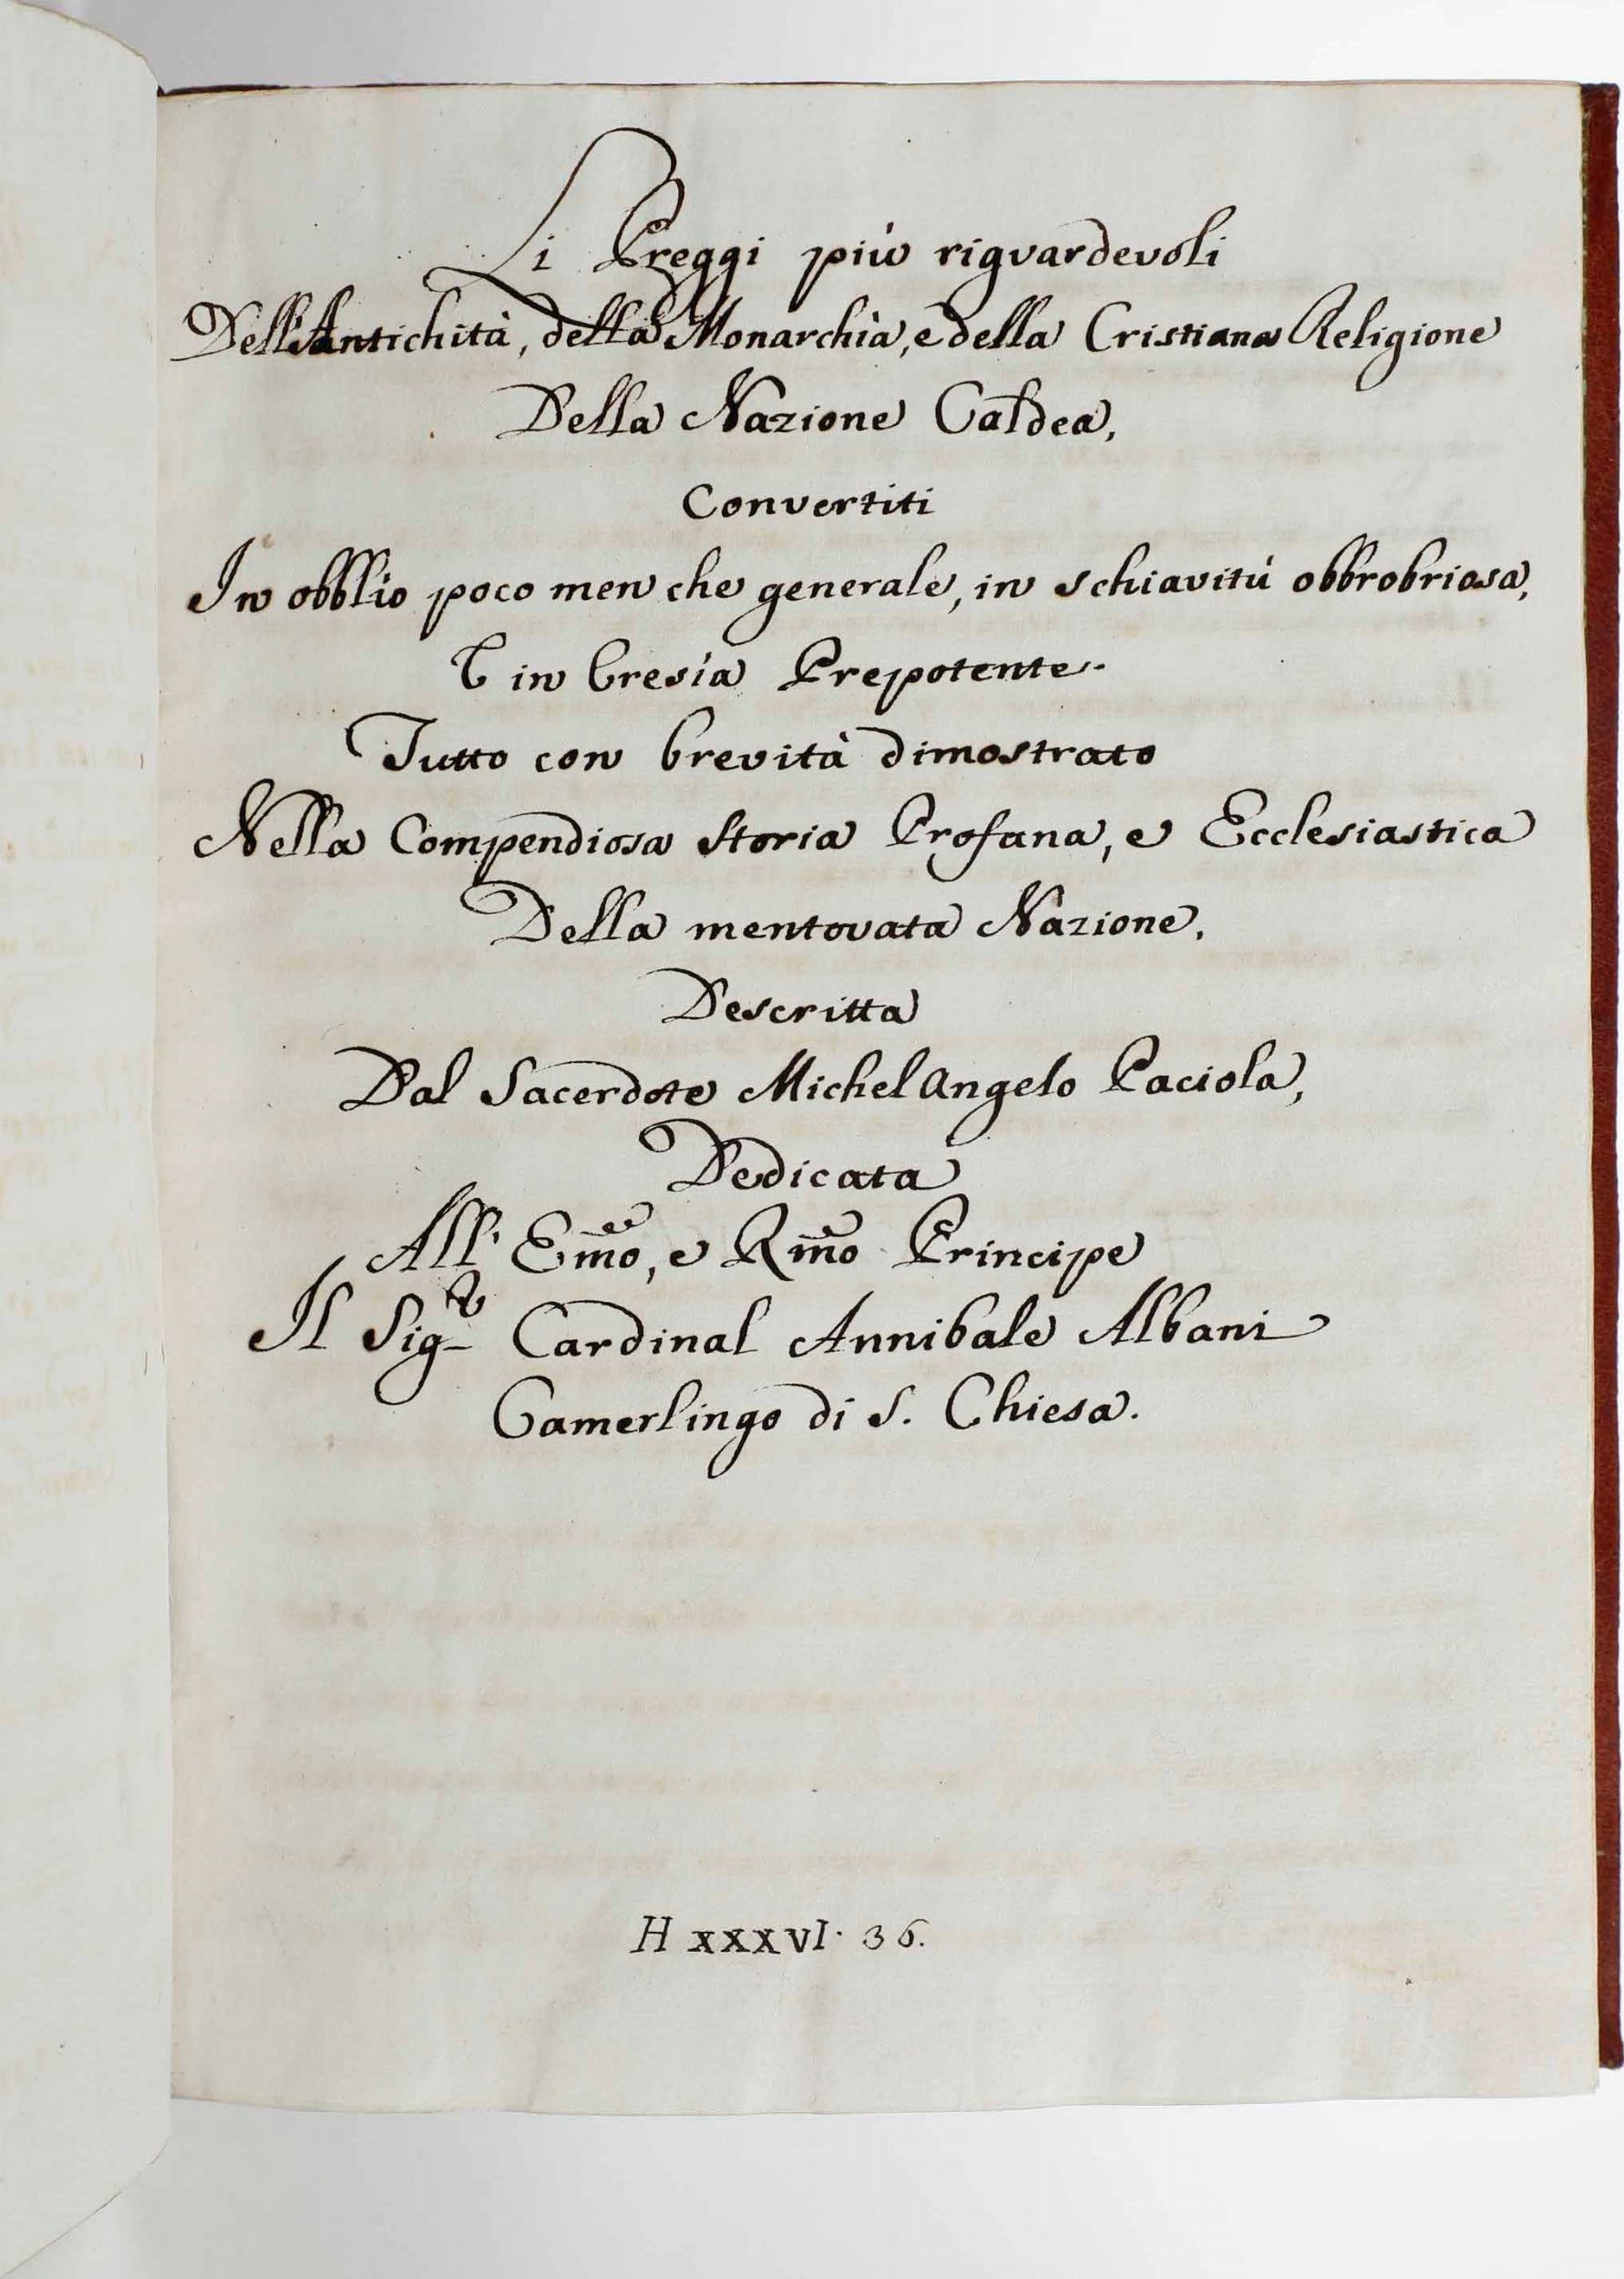 Li Preggi più riguardevoli
Dell'Antichità, della Monarchìa, e della Cristiana Religione
Della Nazione Caldea,
Convertiti
In obblio poco men che generale, in schiavitù obbrobriosa,
E in Eresìa Prepotente.
Tutto con brevità dimostrato
Nella Compendiosa Storia Profana, e Ecclesiastica
Della mentovata Nazione.
Descritta
Dal Sacerdote Michelangelo Paciola,
Dedicata
All' Emo, e Rmo Principe
Il Sigr Cardinal Annibale Albani
Camerlingo di S. Chiesa.
H XXXVI. 36.